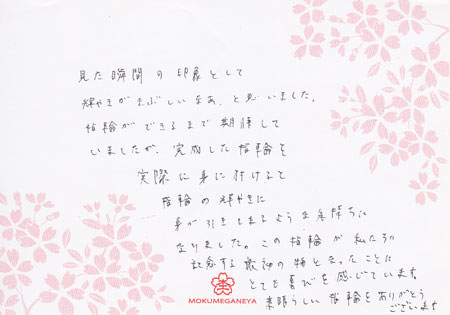 見た瞬間の印象として
輝やきがまぶしいなあ、と思いました。
指輪ができるまで期待して
いましたが、完成した指輪を
実際に身に付けると
指輪の輝やきに
身が引きしまるような気持ちに
なりました。この指輪が私たちに
記念する最初の物となったことに
とても喜びを感じています。
素晴らしい指輪をありがとう
ございます
MOKUMEGANEYA